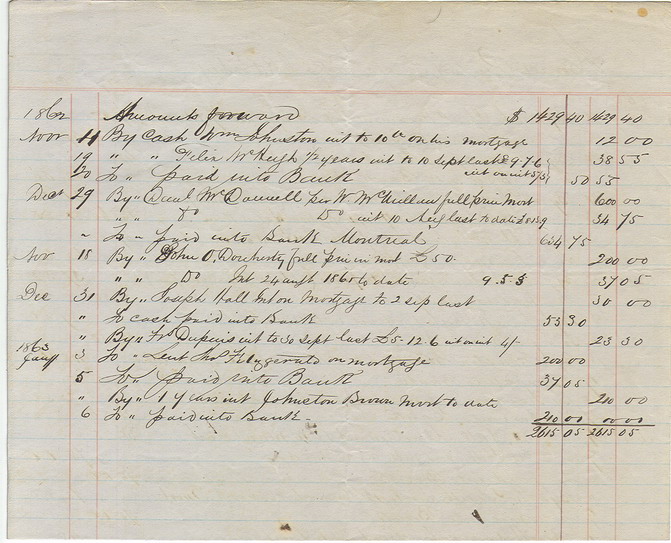 1862 Amounts forward $ 1429 40 1429 40
Novr 11 By Cash Wm Johnston int to 10th on his mortgage 12 00
19 " " Felix McHugh 1/2 years int to 10 Sept last £9.7.6 38 55
20 " To " paid into Bank int on int 5/3 50 55
Decr 29 By " Danl McDonnell per W. McMillan full prin Mort 600 00
" " " Do Do int 10 Aug last to date 34 75
" To " paid into Bank Montreal 634 75
Nov 18 By " John O. Docherty full prin in mort £50. 200 00
" " " Do Int 24 augt 1860 to date 9.5.3 37 05
Dec 31 By " Joseph Hall Int on Mortgage to 2 Sep last 30 00
" To cash paid into Bank 53 30
" By " Frs Dupuis int to 30 Sept last £5-12.6 int on int 4/- 23 30
1863
Jany 3 To " Lent Jno Fitzgerald on mortgage 200 00
5 To " paid into Bank 37 05
" By " 1 years int Johnston Brown Mort to date 210 00
6 To " paid into Bank - 210 00 00 00
2615 05 2615 05